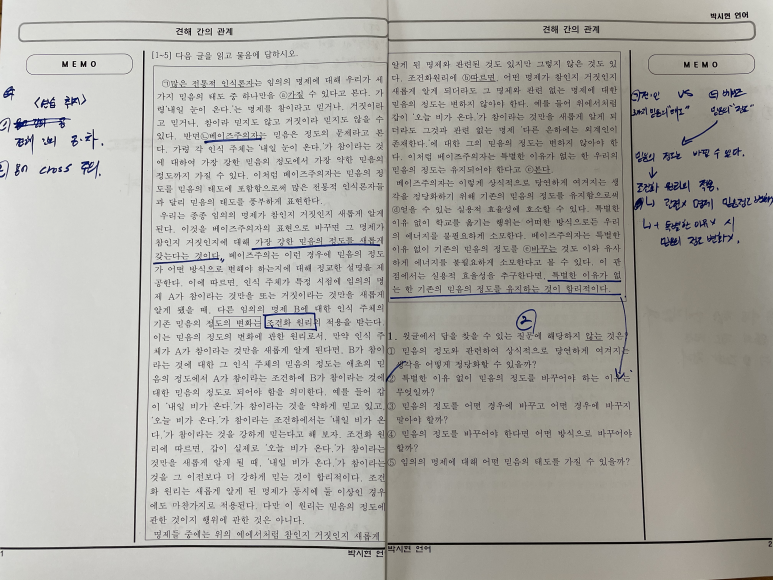 박시현 언어
견해 간의 관계
MEMO
[1~5] 다음 글을 읽고 물음에 답하시오.
㉠많은 전통적 인식론자는 임의의 명제에 대해 우리가 세
가지 믿음의 태도 중 하나만을 ⓐ가질 수 있다고 본다. 가
령 '내일 눈이 온다.'는 명제를 참이라고 믿거나, 거짓이라
고 믿거나, 참이라 믿지도 않고 거짓이라 믿지도 않을 수
있다. 반면 ㉡베이즈주의자는 믿음은 정도의 문제라고 본
다. 가령 각 인식 주체는 '내일 눈이 온다.'가 참이라는 것
에 대하여 가장 강한 믿음의 정도에서 가장 약한 믿음의
정도까지 가질 수 있다. 이처럼 베이즈주의자는 믿음의 정
도를 믿음의 태도에 포함함으로써 많은 전통적 인식론자들
과 달리 믿음의 태도를 풍부하게 표현한다.
우리는 종종 임의의 명제가 참인지 거짓인지 새롭게 알게
된다. 이것을 베이즈주의자의 표현으로 바꾸면 그 명제가
참인지 거짓인지에 대해 가장 강한 믿음의 정도를 새롭게
갖는다는 것이다. 베이즈주의는 이런 경우에 믿음의 정도
가 어떤 방식으로 변해야 하는지에 대해 정교한 설명을 제
공한다. 이에 따르면, 인식 주체가 특정 시점에 임의의 명
제 A가 참이라는 것만을 또는 거짓이라는 것만을 새롭게
알게 됐을 때, 다른 임의의 명제 B에 대한 인식 주체의
기존 믿음의 정도의 변화는 조건화 원리의 적용을 받는다.
이는 믿음의 정도의 변화에 관한 원리로서, 만약 인식 주
체가 A가 참이라는 것만을 새롭게 알게 된다면, B가 참이
라는 것에 대한 그 인식 주체의 믿음의 정도는 애초의 믿
음의 정도에서 A가 참이라는 조건하에 B가 참이라는 것에
대한 믿음의 정도로 되어야 함을 의미한다. 예를 들어 갑
이 '내일 비가 온다.'가 참이라는 것을 약하게 믿고 있고,
'오늘 비가 온다.'가 참이라는 조건하에서는 '내일 비가 온
다.'가 참이라는 것을 강하게 믿는다고 해 보자. 조건화 원
리에 따르면, 갑이 실제로 '오늘 비가 온다.'가 참이라는
것만을 새롭게 알게 될 때, '내일 비가 온다.'가 참이라는
것을 그 이전보다 더 강하게 믿는 것이 합리적이다. 조건
화 원리는 새롭게 알게 된 명제가 동시에 둘 이상인 경우
에도 마찬가지로 적용된다. 다만 이 원리는 믿음의 정도에
관한 것이지 행위에 관한 것은 아니다.
명제들 중에는 위의 예에서처럼 참인지 거짓인지 새롭게
1
박시현 언
견해 간의 관계
MEMO
알게 된 명제와 관련된 것도 있지만 그렇지 않은 것도 있
다. 조건화원리에 ⓑ따르면, 어떤 명제가 참인지 거짓인지
새롭게 알게 되더라도 그 명제와 관련 없는 명제에 대한
믿음의 정도는 변하지 않아야 한다. 예를 들어 위에서처럼
갑이 '오늘 비가 온다.'가 참이라는 것만을 새롭게 알게 되
더라도 그것과 관련 없는 명제 '다른 은하에는 외계인이
존재한다.'에 대한 그의 믿음의 정도는 변하지 않아야 한
다. 이처럼 베이즈주의자는 특별한 이유가 없는 한 우리의
믿음의 정도는 유지되어야 한다고 ⓒ본다.
베이즈주의자는 이렇게 상식적으로 당연하게 여겨지는 생
각을 정당화하기 위해 기존의 믿음의 정도를 유지함으로써
ⓓ얻을 수 있는 실용적 효율성에 호소할 수 있다. 특별한
이유 없이 학교를 옮기는 행위는 어떠한 방식으로든 우리
의 에너지를 불필요하게 소모한다. 베이즈주의자는 특별한
이유 없이 기존의 믿음의 정도를 ⓔ바꾸는 것도 이와 유사
하게 에너지를 불필요하게 소모한다고 볼 수 있다. 이 관
점에서는 실용적 효율성을 추구한다면, 특별한 이유가 없
는 한 기존의 믿음의 정도를 유지하는 것이 합리적이다.
②
1. 윗글에서 답을 찾을 수 있는 질문에 해당하지 않는 것은?
① 믿음의 정도와 관련하여 상식적으로 당연하게 여겨지는
생각을 어떻게 정당화할 수 있을까?
② 특별한 이유 없이 믿음의 정도를 바꾸어야 하는 이유는
무엇일까?
③ 믿음의 정도를 어떤 경우에 바꾸고 어떤 경우에 바꾸지
말아야 할까?
④ 믿음의 정도를 바꾸어야 한다면 어떤 방식으로 바꾸어야
할까?
⑤ 임의의 명제에 대해 어떤 믿음의 태도를 가질 수 있을까?
박시현 언어
2
vs
믿음의 "정도"
믿음의 정도는 바뀔 수 있다.
조건화 원리의 적용.
cross 주의.